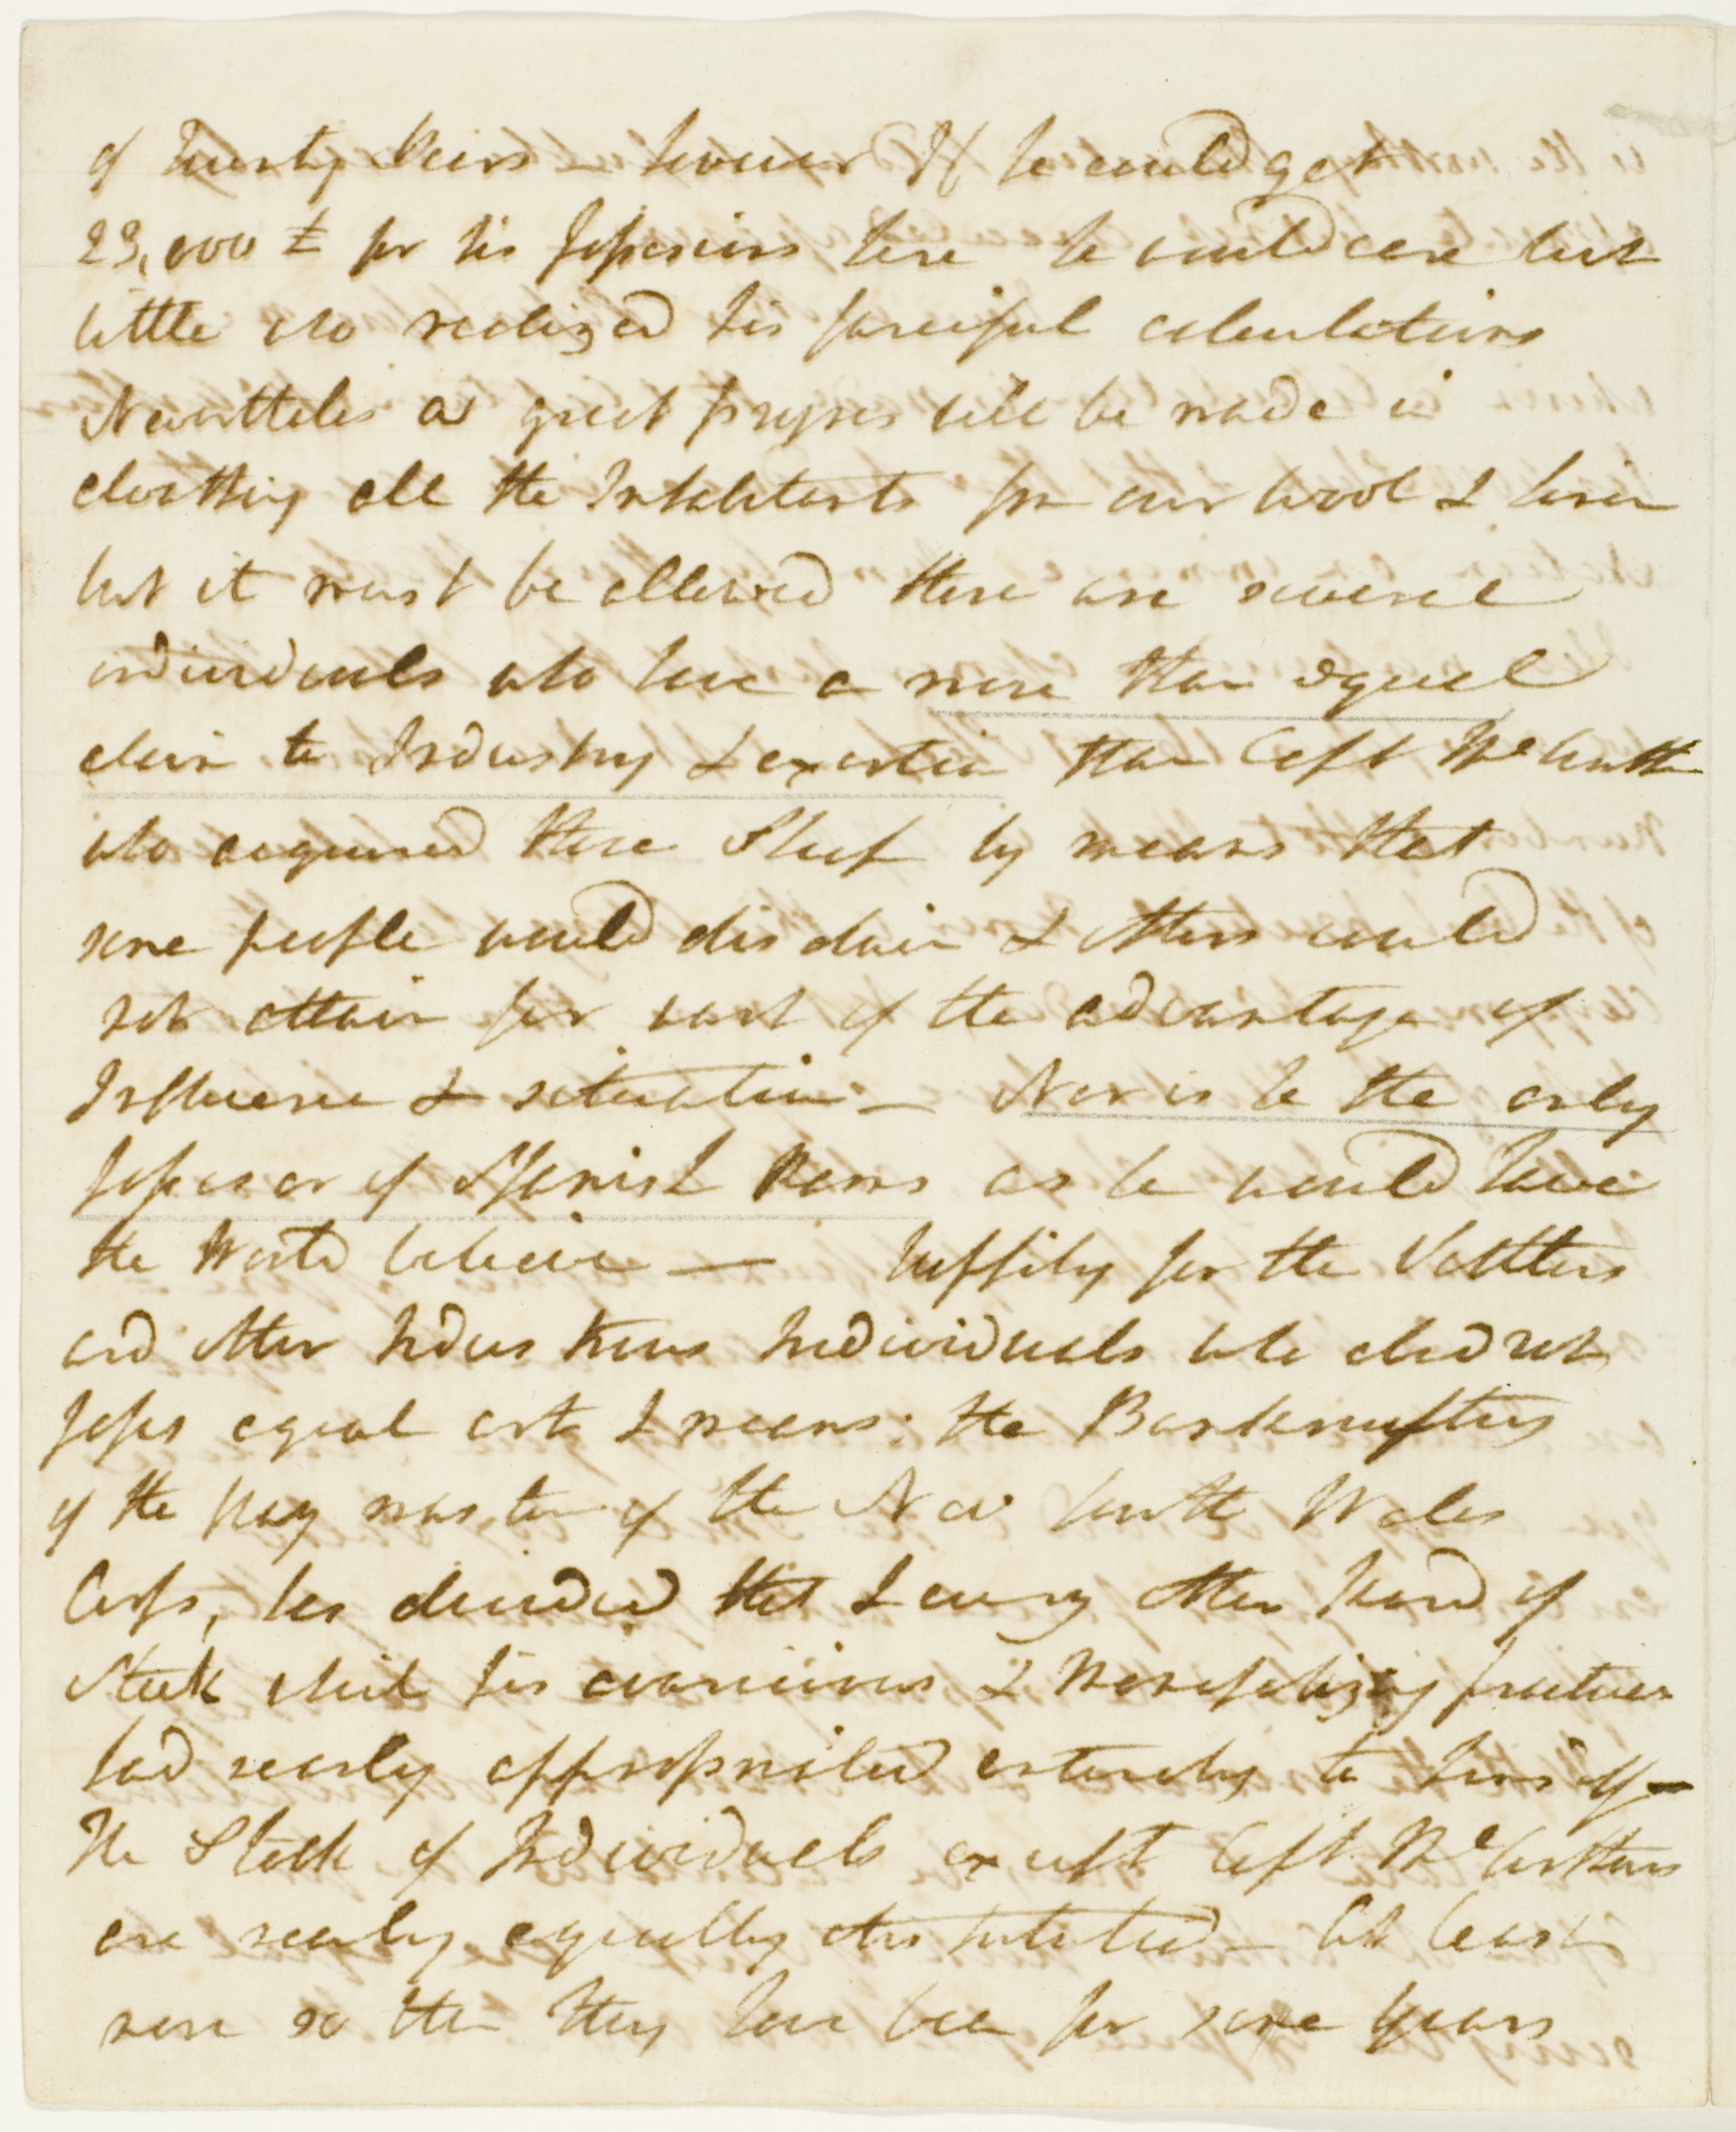 of twenty Years – however If he could get
23,000 £ for his possessions here he would care but
little who realized his fanciful calculations
Nevertheles a great progres will be made in
cloathing all the Inhabitants from our wool & linen
but it must be allowed there are several
individuals who have a more than equal
claim to Industry & exertion than Capt McArthur
who acquired these Sheep by means that
some people would disdain & others could
not attain for want of the advantage of
Influence & situation – Nor is he the only
possessor of Spanish Rams as he would have
the World believe — happily for the Settlers
and other Industrious Individuals who did not
posses equal art & means: the Bankruptcy
of the Pay master of the New South Wales
Corps, has divided that & every other kind of
Stock which his avaricious & Monopolizing practices
had nearly appropriated entirely to himself –
The Stock of Individuals except Capt. McArthurs
are nearly equally distributed – At least
more so than they have been for some years